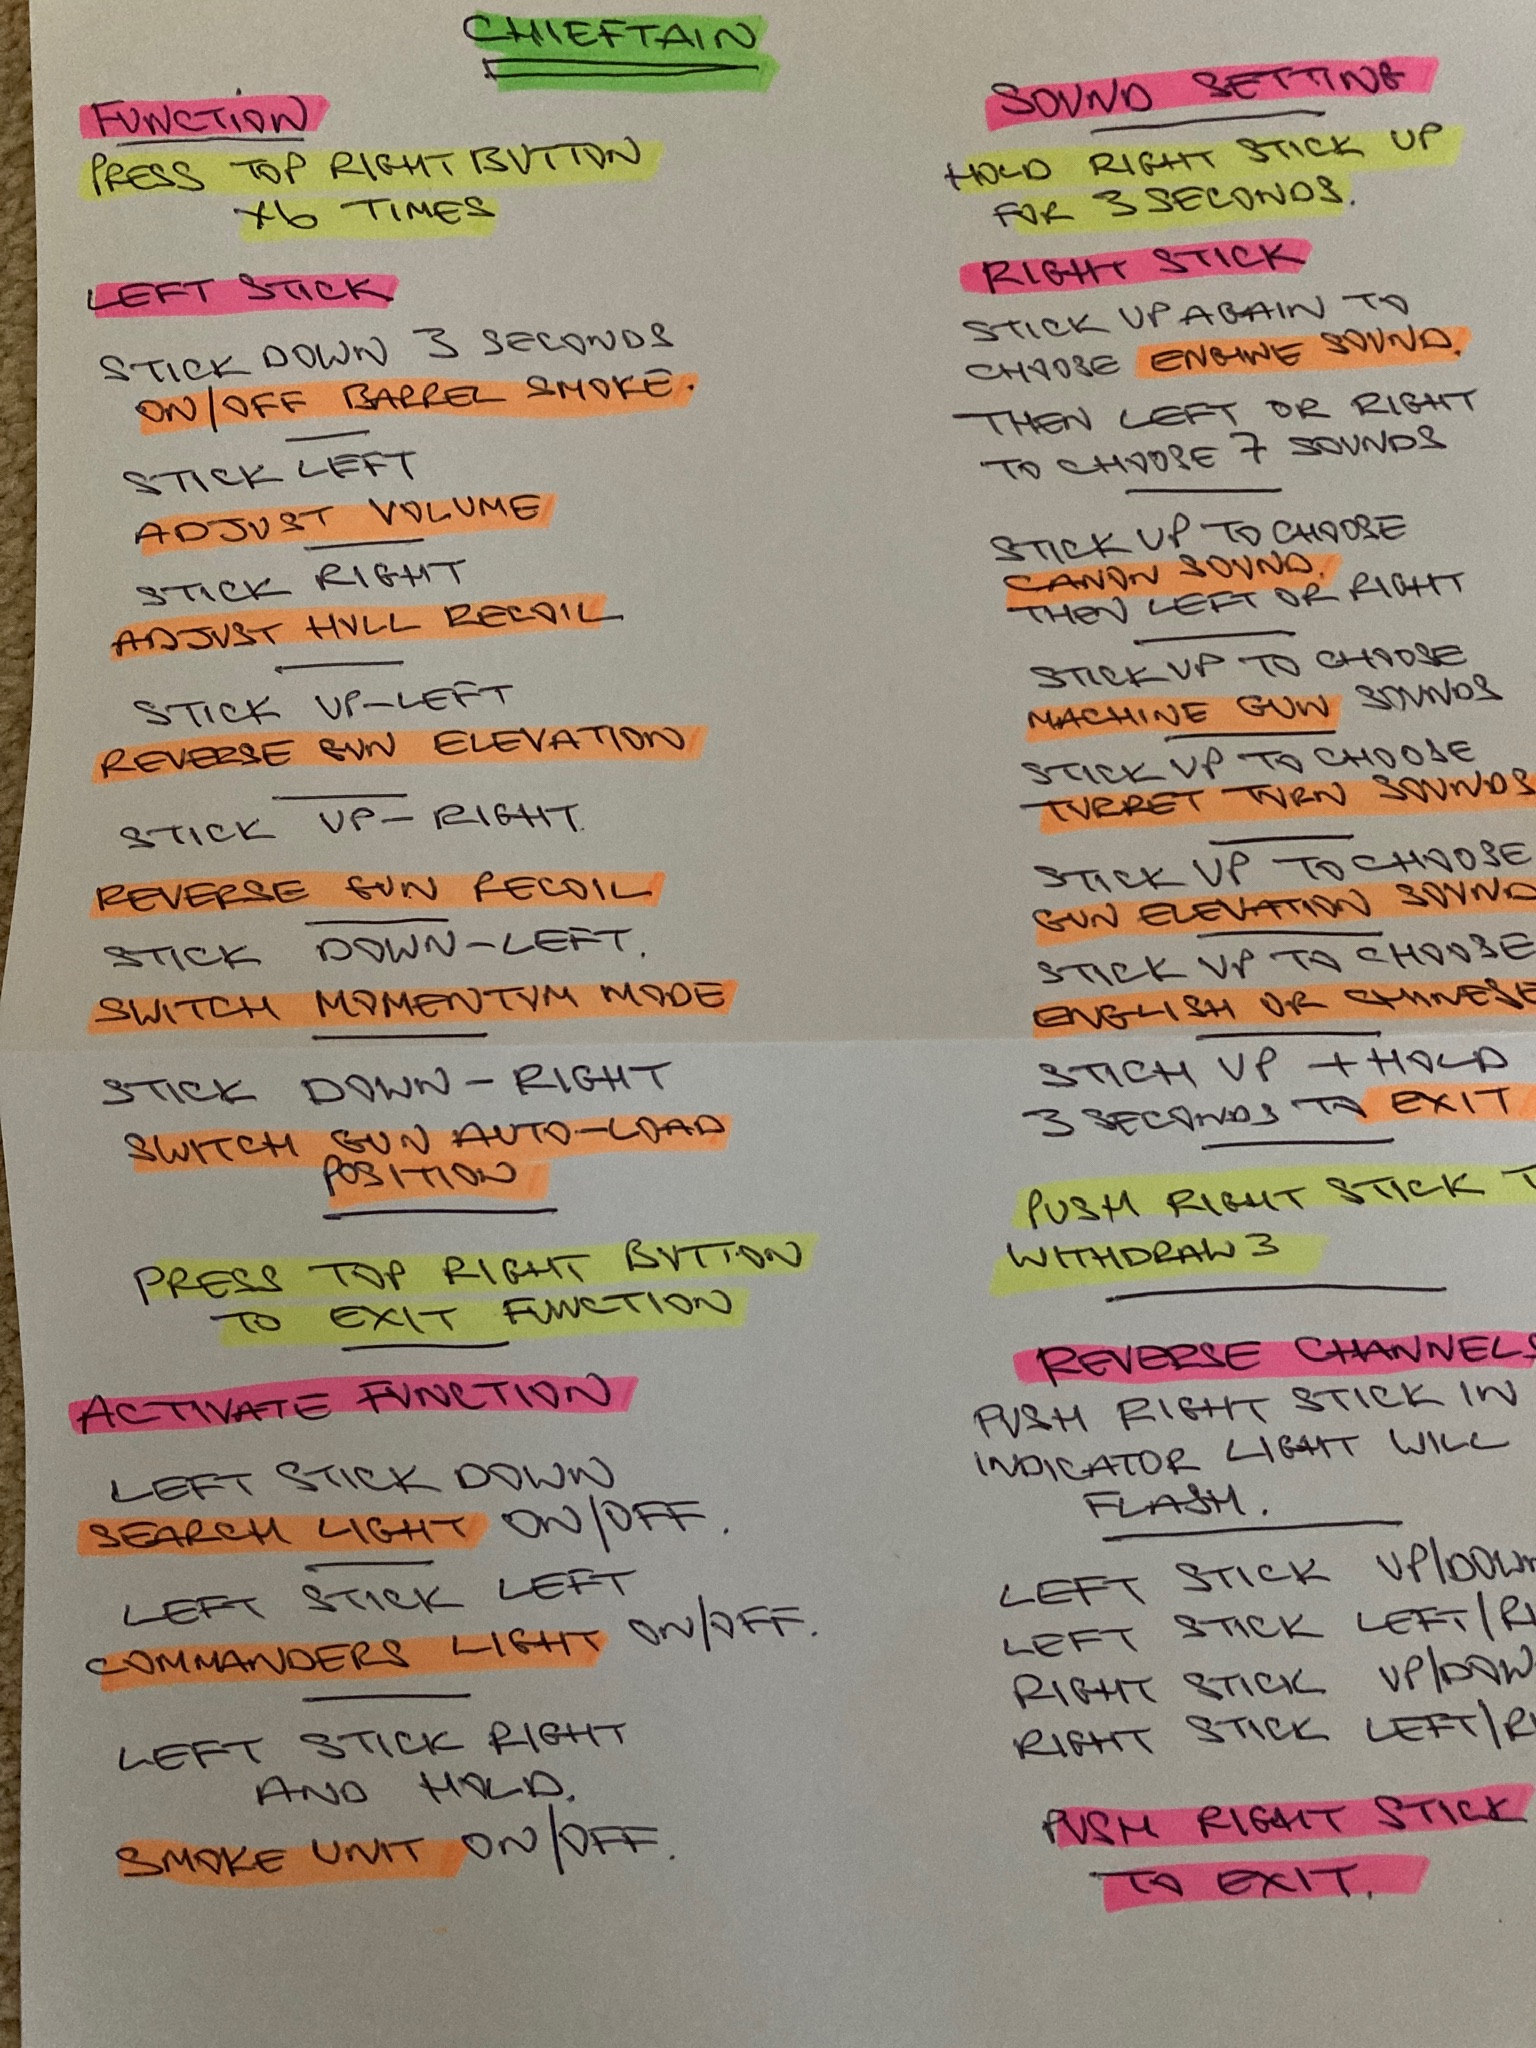 CHIEFTAIN
FUNCTION
PRESS TOP RIGHT BUTTON
X6 TIMES
LEFT STICK
STICK DOWN 3 SECONDS
ON/OFF BARREL SMOKE.
STICK LEFT
ADJUST VOLUME
STICK RIGHT
ADJUST HULL RECOIL
STICK UP-LEFT
REVERSE GUN ELEVATION
STICK UP-RIGHT.
REVERSE GUN RECOIL
STICK DOWN-LEFT.
SWITCH MOMENTUM MODE
STICK DOWN-RIGHT
SWITCH GUN AUTO-LOAD
POSITION
PRESS TOP RIGHT BUTTON
TO EXIT FUNCTION
ACTIVATE FUNCTION
LEFT STICK DOWN
SEARCH LIGHT ON/OFF.
LEFT STICK LEFT
COMMANDERS LIGHT ON/OFF.
LEFT STICK RIGHT
AND HOLD.
SMOKE UNIT ON/OFF.
SOUND SETTING
HOLD RIGHT STICK UP
FOR 3 SECONDS.
RIGHT STICK
STICK UP AGAIN TO
CHOOSE ENGINE SOUND.
THEN LEFT OR RIGHT
TO CHOOSE 7 SOUNDS
STICK UP TO CHOOSE
CANON SOUND.
THEN LEFT OR RIGHT
STICK UP TO CHOOSE
MACHINE GUN SOUNDS
STICK UP TO CHOOSE
TURRET TURN SOUNDS
STICK UP TO CHOOSE
GUN ELEVATION SOUND
STICK UP TO CHOOSE
ENGLISH OR CHINESE
STICH UP + HOLD
3 SECONDS TO EXIT
PUSH RIGHT STICK T
WITHDRAW 3
REVERSE CHANNELS
PUSH RIGHT STICK IN
INDICATOR LIGHT WILL
FLASH.
LEFT STICK UP/DOWN
LEFT STICK LEFT/RI
RIGHT STICK UP/DOW
RIGHT STICK LEFT/RI
PUSH RIGHT STICK
TO EXIT.